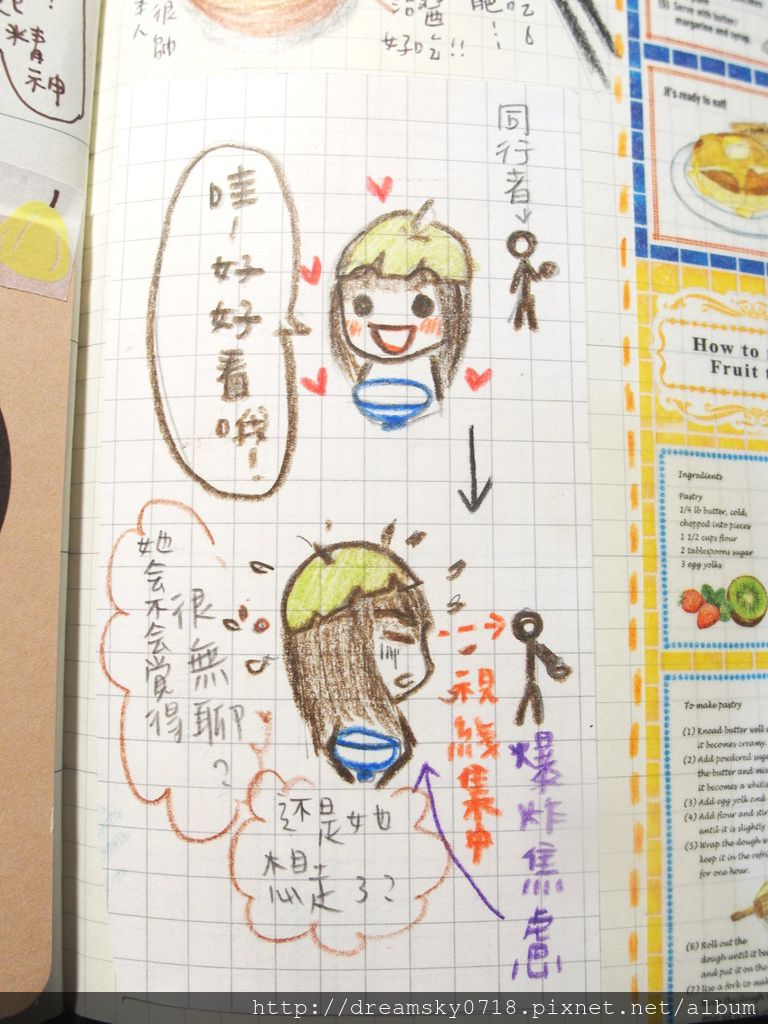 精
神
很帥
本人
好吃!!
同行者
哇!好好看哦!
她会不会覺得
很無聊?
視線集中
還是她
想走了?
爆炸焦慮
(6) Serve with butter/
margarine and syrup.
It's ready to eat!
How to
Fruit
Ingredients
Pastry
1/4 lb butter, cold,
chopped into pieces
1 1/2 cups flour
2 tablespoons sugar
3 egg yolks
To make pastry
(1) Knead butter well
it becomes creamy.
(2) Add powdered
the butter and
it becomes a
(3) Add egg yolk and
(4) Add flour and
until it is slightly
(5) Wrap the dough
keep it in the
for one hour.
(6) Roll out the
dough until it
and put it on the
(7) Use a fork to
http://dreamsky0718.pixnet.net/album